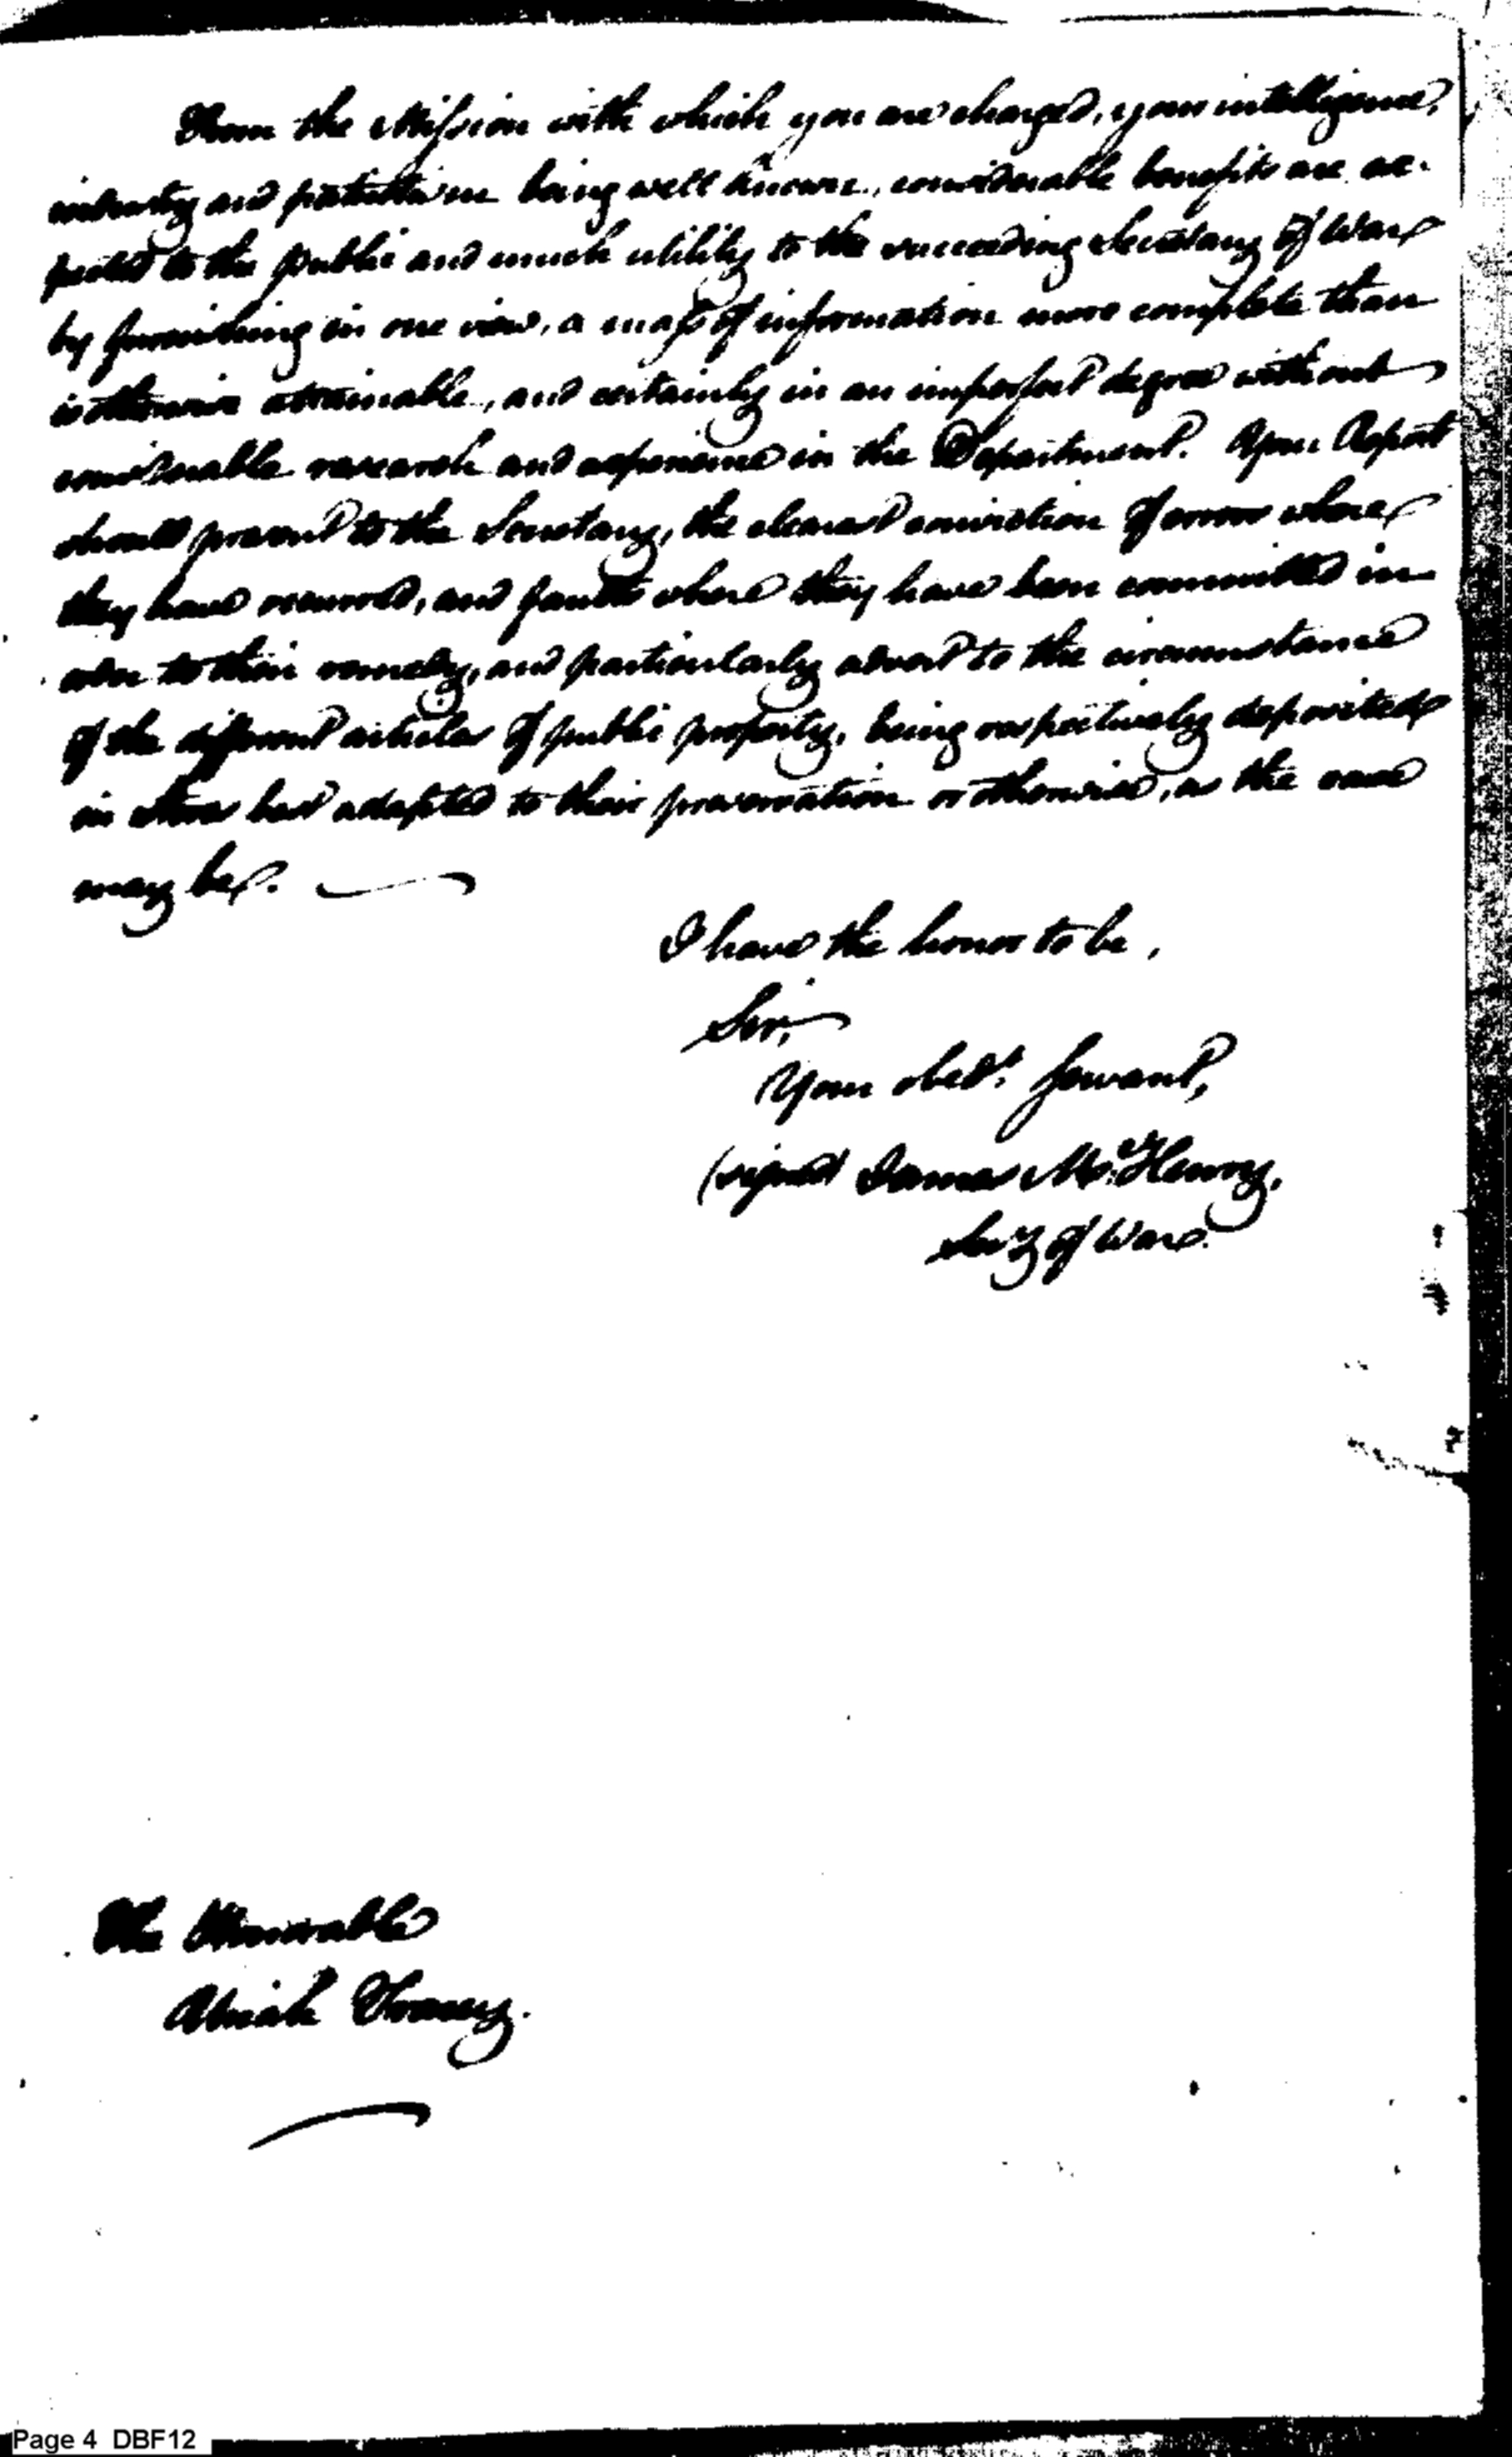 From the Mission with which you are charged, your intelligence,
industry and patriotism being well known, considerable benefits are ex-
pected to the public and much utility to the succeeding Secretary of War
by furnishing in one view, a mass of information more complete than
is otherwise attainable, and certainly in an imperfect degree without
considerable research and experience in the Department. Your Report
should present to the Secretary, the clearest conviction of errors where
they have occurred, and faults where they have been committed in
order to their remedy, and particularly advert to the circumstance
of the different articles of public property, being respectively deposited
in Stores best adapted to their preservation or otherwise, as the case
may be.
I have the honor to be,
Sir,
Your obedt. servant,
(signed James McHenry,
Secy of War.
The Honorable
Uriah Tracey.
Page 4 DBF12